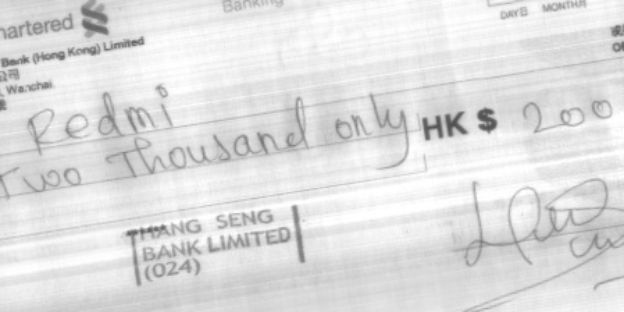 hartered
Banking
DAYS MONTHS
Bank (Hong Kong) Limited
公司
, Wanchai
Redmi
Two Thousand only HK $ 200
HANG SENG
BANK LIMITED
(024)